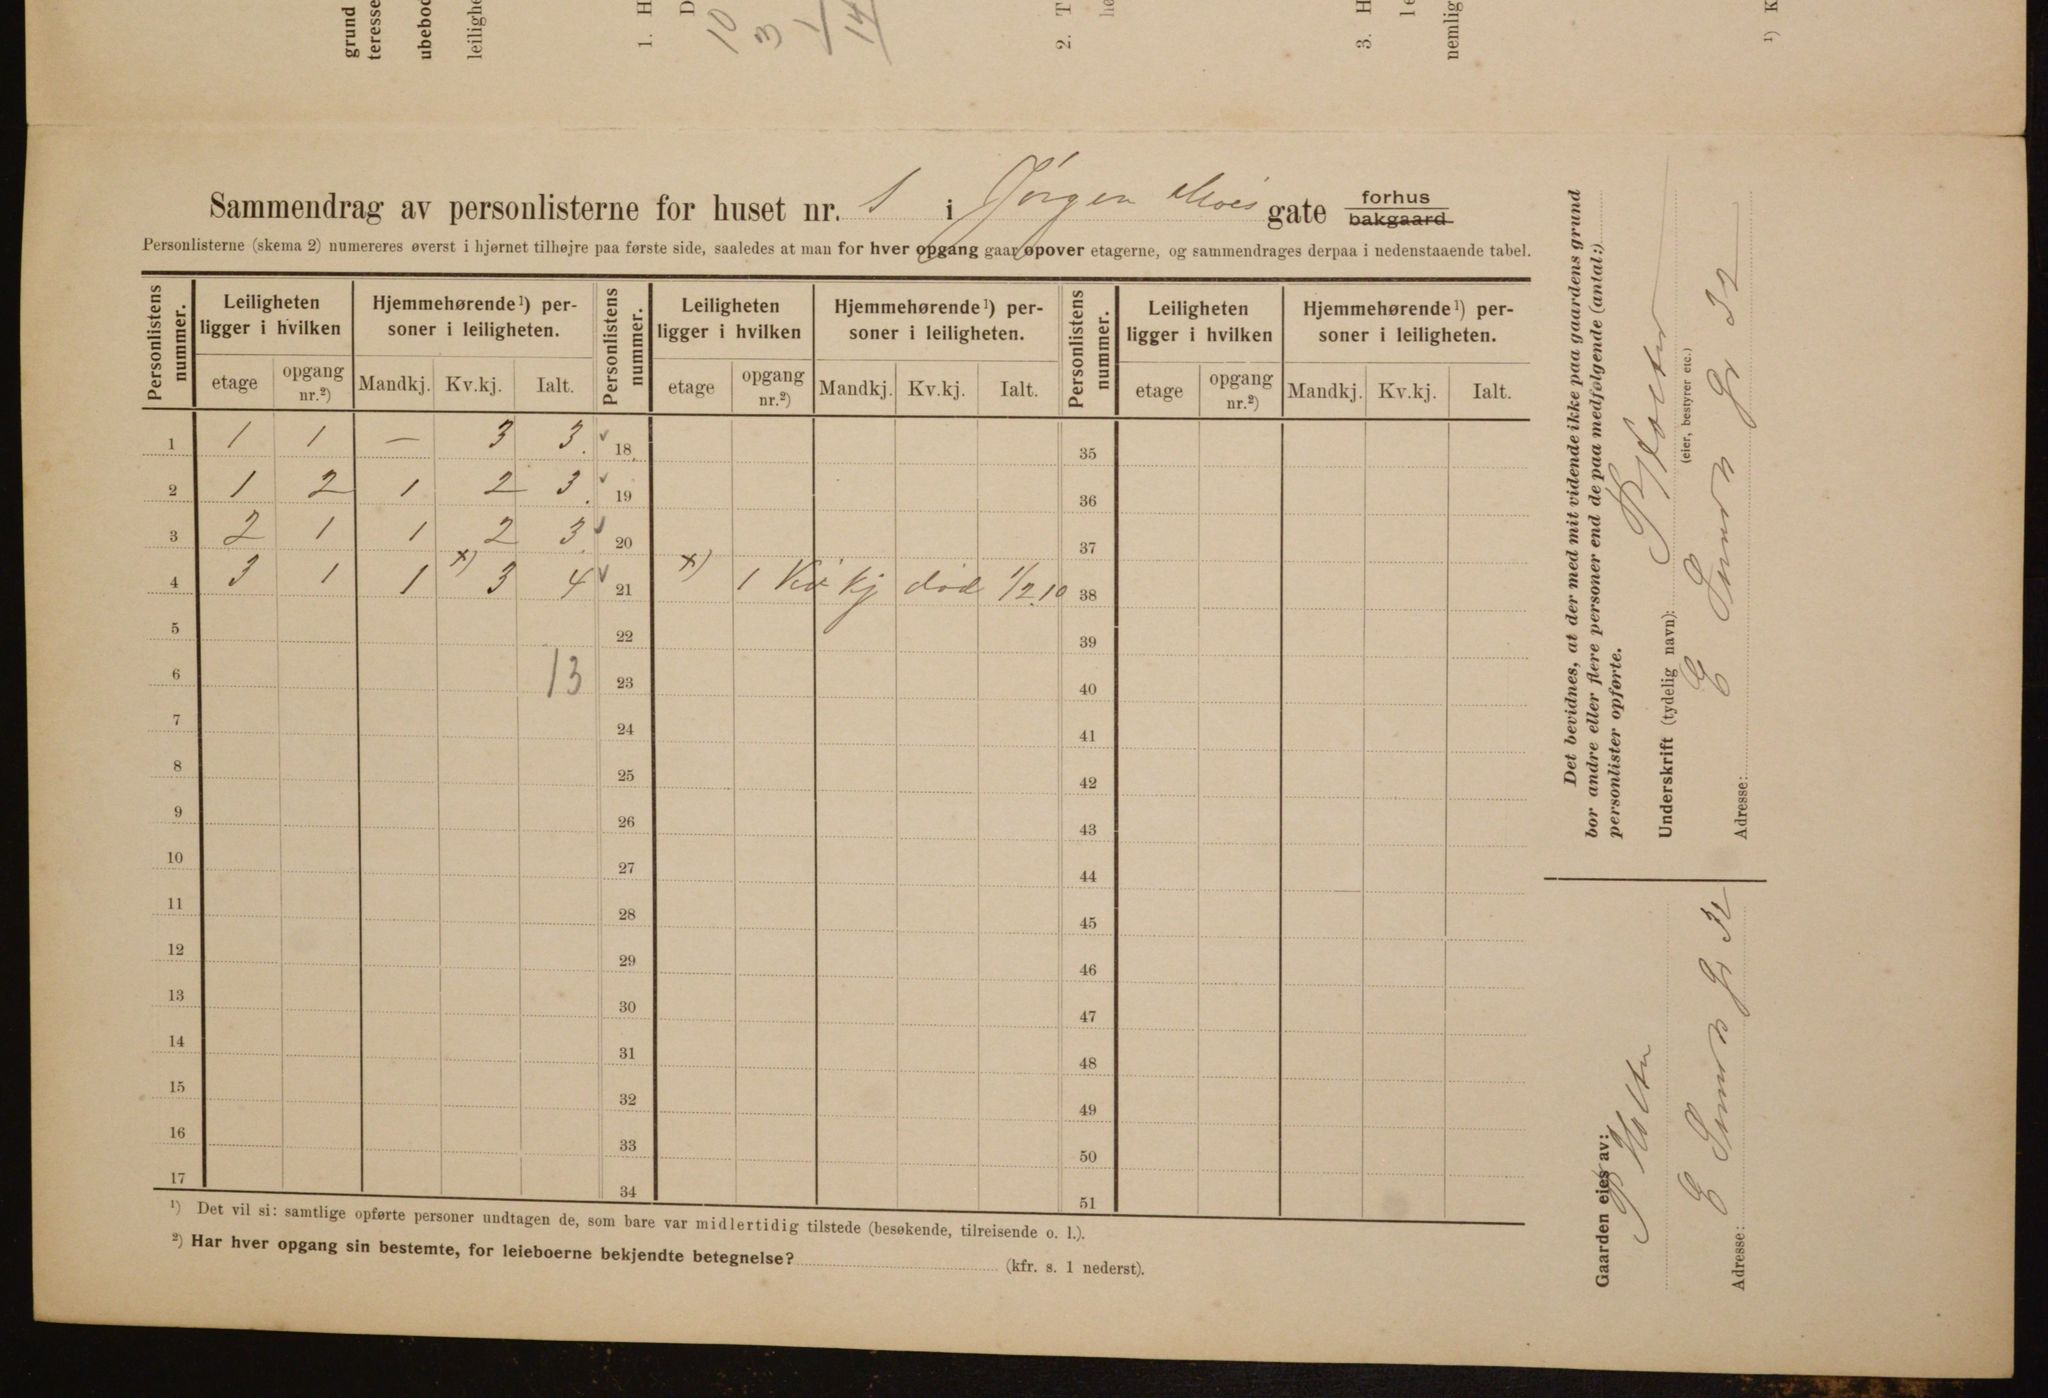 grund
teresse
ubeboe
leilighe
1. H
D
10
3
1
14
2. T
hø
3. H
le
nemlig
¹) K
Sammendrag av personlisterne for huset nr. 1 i Jørgen Moes gate forhus
bakgaard
Personlisterne (skema 2) numereres øverst i hjørnet tilhøjre paa første side, saaledes at man for hver opgang gaar opover etagerne, og sammendrages derpaa i nedenstaaende tabel.
Personlistens nummer. Leiligheten ligger i hvilken Hjemmehørende¹) personer i leiligheten. Personlistens nummer. Leiligheten ligger i hvilken Hjemmehørende¹) personer i leiligheten. Personlistens nummer. Leiligheten ligger i hvilken Hjemmehørende¹) personer i leiligheten.
etage opgang nr.²) Mandkj. Kv.kj. Ialt. etage opgang nr.²) Mandkj. Kv.kj. Ialt. etage opgang nr.²) Mandkj. Kv.kj. Ialt.
1 1 1 — 3 3. ✓ 18 35
2 1 2 1 2 3. ✓ 19 36
3 2 1 1 2 3. ✓ 20 37
4 3 1 1 x) 3 4 ✓ 21 x) 1 Kv kj død 1/2.10 38
5 22 39
6 13 23 40
7 24 41
8 25 42
9 26 43
10 27 44
11 28 45
12 29 46
13 30 47
14 31 48
15 32 49
16 33 50
17 34 51
¹) Det vil si: samtlige opførte personer undtagen de, som bare var midlertidig tilstede (besøkende, tilreisende o. l.).
²) Har hver opgang sin bestemte, for leieboerne bekjendte betegnelse? (kfr. s. 1 nederst).
Det bevidnes, at der med mit vidende ikke paa gaardens grund
bor andre eller flere personer end de paa medfølgende (antal:)
personlister opførte.
Underskrift (tydelig navn): P Holter
(eier, bestyrer etc.)
Adresse: E 32
Gaarden eies av:
P Holter
Adresse: E 32